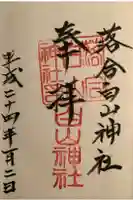 落合白山神社
奉拝
白山神社
平成二十四年一月二日